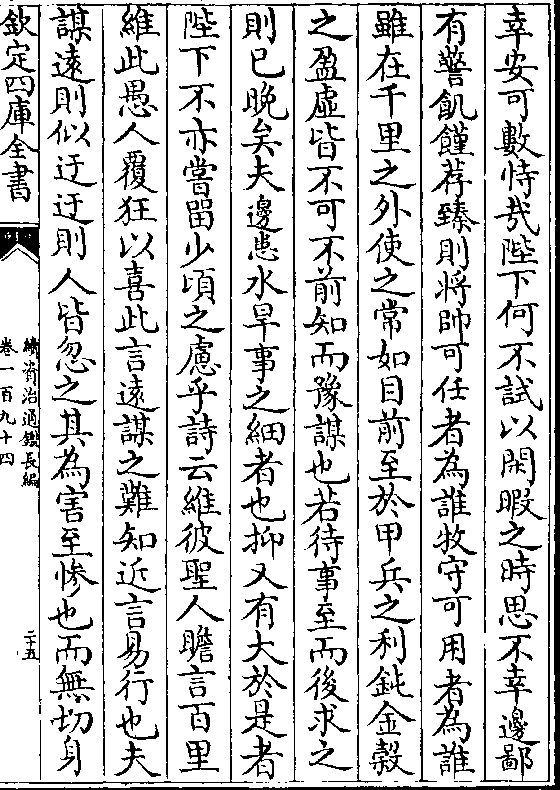 幸安可數恃哉陛下何不試以閑暇之時思不幸邊鄙
有警飢饉荐臻則將帥可任者為誰牧守可用者為誰
雖在千里之外使之常如目前至於甲兵之利鈍金穀
之盈虛皆不可不前知而豫謀也若待事至而後求之
則已晚矣夫邊患水旱事之細者也抑又有大於是者
陛下不亦嘗留少頃之慮乎詩云維彼聖人瞻言百里
維此愚人覆狂以喜此言遠謀之難知近言易行也夫
謀遠則似迂迂則人皆忽之其為害至慘也而無切身
欽定四庫全書
續資治通鑑長編
卷一百九十四
二十五